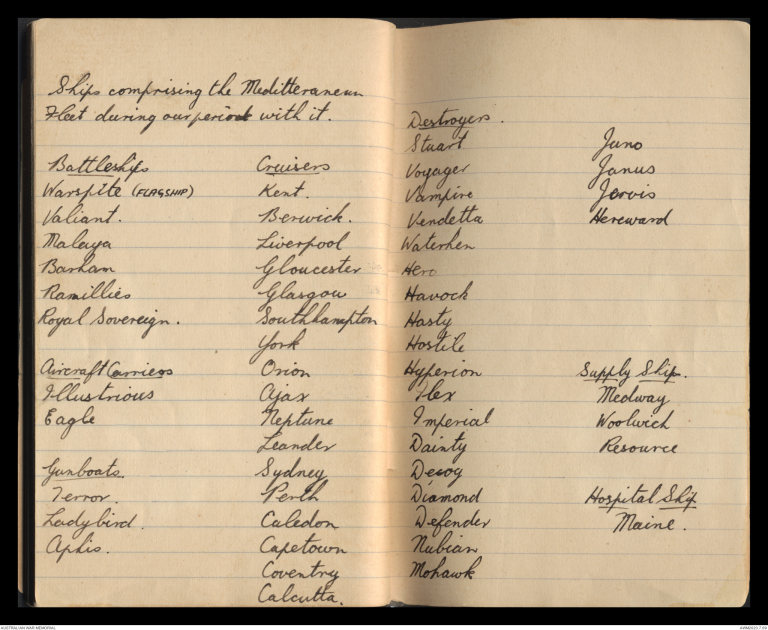 Ships comprising the Meditteranean
Fleet during our period with it.
Battleships
Warspite (FLAGSHIP)
Valiant.
Malaya
Barham
Ramillies
Royal Sovereign.
Aircraft Carriers
Illustrious
Eagle
Gunboats.
Terror.
Ladybird.
Aphis.
Cruisers
Kent.
Berwick.
Liverpool
Gloucester
Glasgow
Southhampton
York
Orion
Ajax
Neptune
Leander
Sydney
Perth
Caledon
Capetown
Coventry
Calcutta.
Destroyers.
Stuart
Voyager
Vampire
Vendetta
Waterhen
Hero
Havock
Hasty
Hostile
Hyperion
Ilex
Imperial
Dainty
Decoy
Diamond
Defender
Nubian
Mohawk
Juno
Janus
Jervis
Hereward
Supply Ship.
Medway
Woolwich
Resource
Hospital Ship
Maine.
AUSTRALIAN WAR MEMORIAL